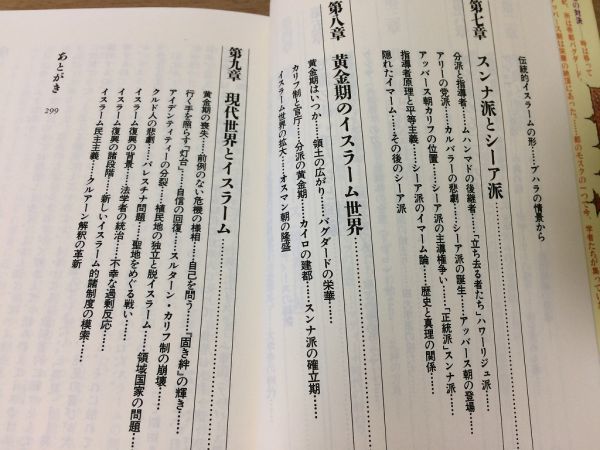 伝統的イスラームの形……ブハラの情景から
第七章　スンナ派とシーア派
分派と指導者……ムハンマドの後継者……「立ち去る者たち」ハワーリジュ派……
アリーの党派……カルバラーの悲劇……シーア派の誕生……アッバース朝の登場……
アッバース朝カリフの位置……シーア派の主導権争い……「正統派」スンナ派……
指導者原理と平等主義……シーア派のイマーム論……歴史と真理の関係……
隠れたイマーム……その後のシーア派
第八章　黄金期のイスラーム世界
黄金期はいつか……領土の広がり……バグダードの栄華……
カリフ制と官庁……分派の黄金期……カイロの建都……スンナ派の確立期……
イスラーム世界の拡大……オスマン朝の隆盛
第九章　現代世界とイスラーム
黄金期の喪失……前例のない危機の様相……自己を問う……『固き絆』の輝き……
行く手を照らす「灯台」……自信の回復……スルターン・カリフ制の崩壊……
アイデンティティーの分裂……植民地の独立と脱イスラーム……領域国家の問題……
クルド人の悲劇……パレスチナ問題……聖地をめぐる戦い……
イスラーム復興の背景……法学者の統治……不幸な過剰反応……
イスラーム復興の諸段階……新しいイスラーム的諸制度の模索……
イスラーム民主主義……クルアーン解釈の革新
あとがき　299